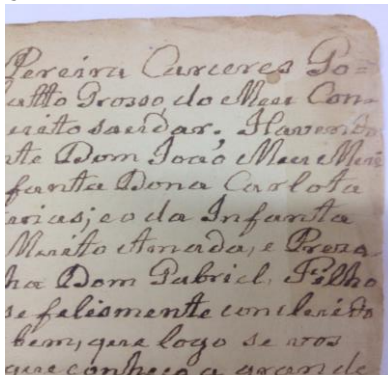 Pereira Carceres Go=
atto Grosso, do Meu Con=
uito saudar. Havendo
nte Dom João Meu Mui
fanta Dona Carlota
arias; e o da Infanta
Muito Amada, e Preza
ha Dom Gabriel, Filho
se felismente concluido
bem, que logo se vos
que conheço a grande